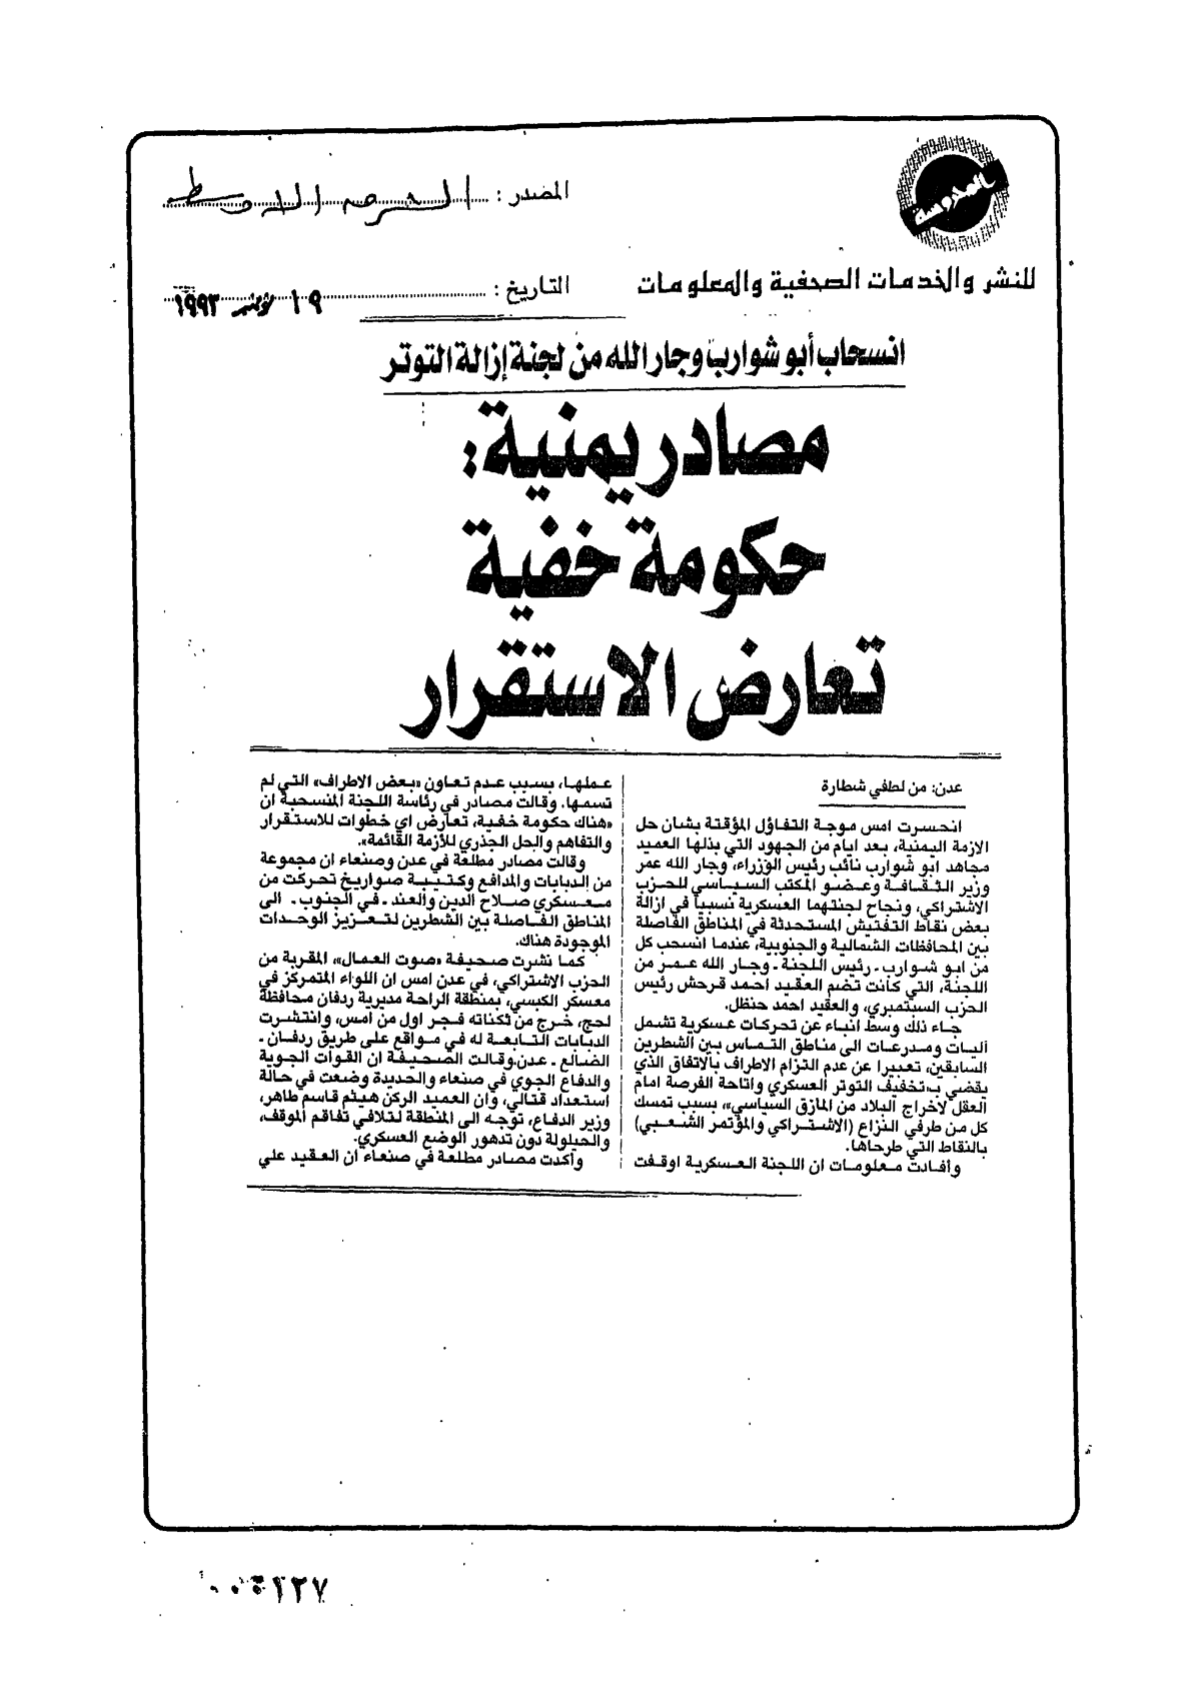 المصدر : الشرق الاوسط
للنشر والخدمات الصحفية والمعلومات
التاريخ : ١٩ نوفمبر ١٩٩٣
انسحاب أبو شوارب وجار الله من لجنة إزالة التوتر
مصادر يمنية:
حكومة خفية
تعارض الاستقرار
عدن: من لطفي شطارة
انحسرت امس موجة التفاؤل المؤقتة بشان حل
الازمة اليمنية، بعد ايام من الجهود التي بذلها العميد
مجاهد ابو شوارب نائب رئيس الوزراء، وجار الله عمر
وزير الثقافة وعضو المكتب السياسي للحزب
الاشتراكي، ونجاح لجنتهما العسكرية نسبيا في ازالة
بعض نقاط التفتيش المستحدثة في المناطق الفاصلة
بين المحافظات الشمالية والجنوبية، عندما انسحب كل
من ابو شوارب ـ رئيس اللجنة ـ وجار الله عمر من
اللجنة، التي كانت تضم العقيد احمد قرحش رئيس
الحزب السبتمبري، والعقيد احمد حنظل.
جاء ذلك وسط انباء عن تحركات عسكرية تشمل
آليات ومدرعات الى مناطق التماس بين الشطرين
السابقين، تعبيرا عن عدم التزام الاطراف بالاتفاق الذي
يقضي ب«تخفيف التوتر العسكري واتاحة الفرصة امام
العقل لاخراج البلاد من المازق السياسي»، بسبب تمسك
كل من طرفي النزاع (الاشتراكي والمؤتمر الشعبي)
بالنقاط التي طرحاها.
وأفادت معلومات ان اللجنة العسكرية اوقفت
عملها، بسبب عدم تعاون «بعض الاطراف» التي لم
تسمها. وقالت مصادر في رئاسة اللجنة المنسحبة ان
«هناك حكومة خفية، تعارض اي خطوات للاستقرار
والتفاهم والحل الجذري للأزمة القائمة».
وقالت مصادر مطلعة في عدن وصنعاء ان مجموعة
من الدبابات والمدافع وكتيبة صواريخ تحركت من
معسكري صلاح الدين والعند ـ في الجنوب ـ الى
المناطق الفاصلة بين الشطرين لتعزيز الوحدات
الموجودة هناك.
كما نشرت صحيفة «صوت العمال»، المقربة من
الحزب الاشتراكي، في عدن امس ان اللواء المتمركز في
معسكر الكبسي، بمنطقة الراحة مديرية ردفان محافظة
لحج، خرج من ثكناته فجر اول من امس، وانتشرت
الدبابات التابعة له في مواقع على طريق ردفان ـ
الضالع ـ عدن. وقالت الصحيفة ان القوات الجوية
والدفاع الجوي في صنعاء والحديدة وضعت في حالة
استعداد قتالي، وان العميد الركن هيثم قاسم طاهر،
وزير الدفاع، توجه الى المنطقة لتلافي تفاقم الموقف،
والحيلولة دون تدهور الوضع العسكري.
وأكدت مصادر مطلعة في صنعاء ان العقيد علي